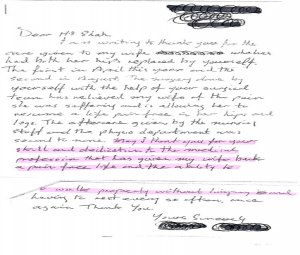 Dear Mr Shah,
I am writing to thank you for the
care given to my wife who has
had both her hips replaced by yourself.
The first in April this year and the
second in August. The surgery done by
yourself with the help of your surgical
team have relieved my wife of the pain
she was suffering and is allowing her to
resume a life pain free in her hips and
legs. The aftercare given by the nursing
staff and the physio department was
second to none. May I thank you for your
skill and dedication to the medical
profession that has given my wife back
a pain free life and the ability to
walk properly without limping and
having to rest every so often, once
again Thank You.
Yours Sincerely